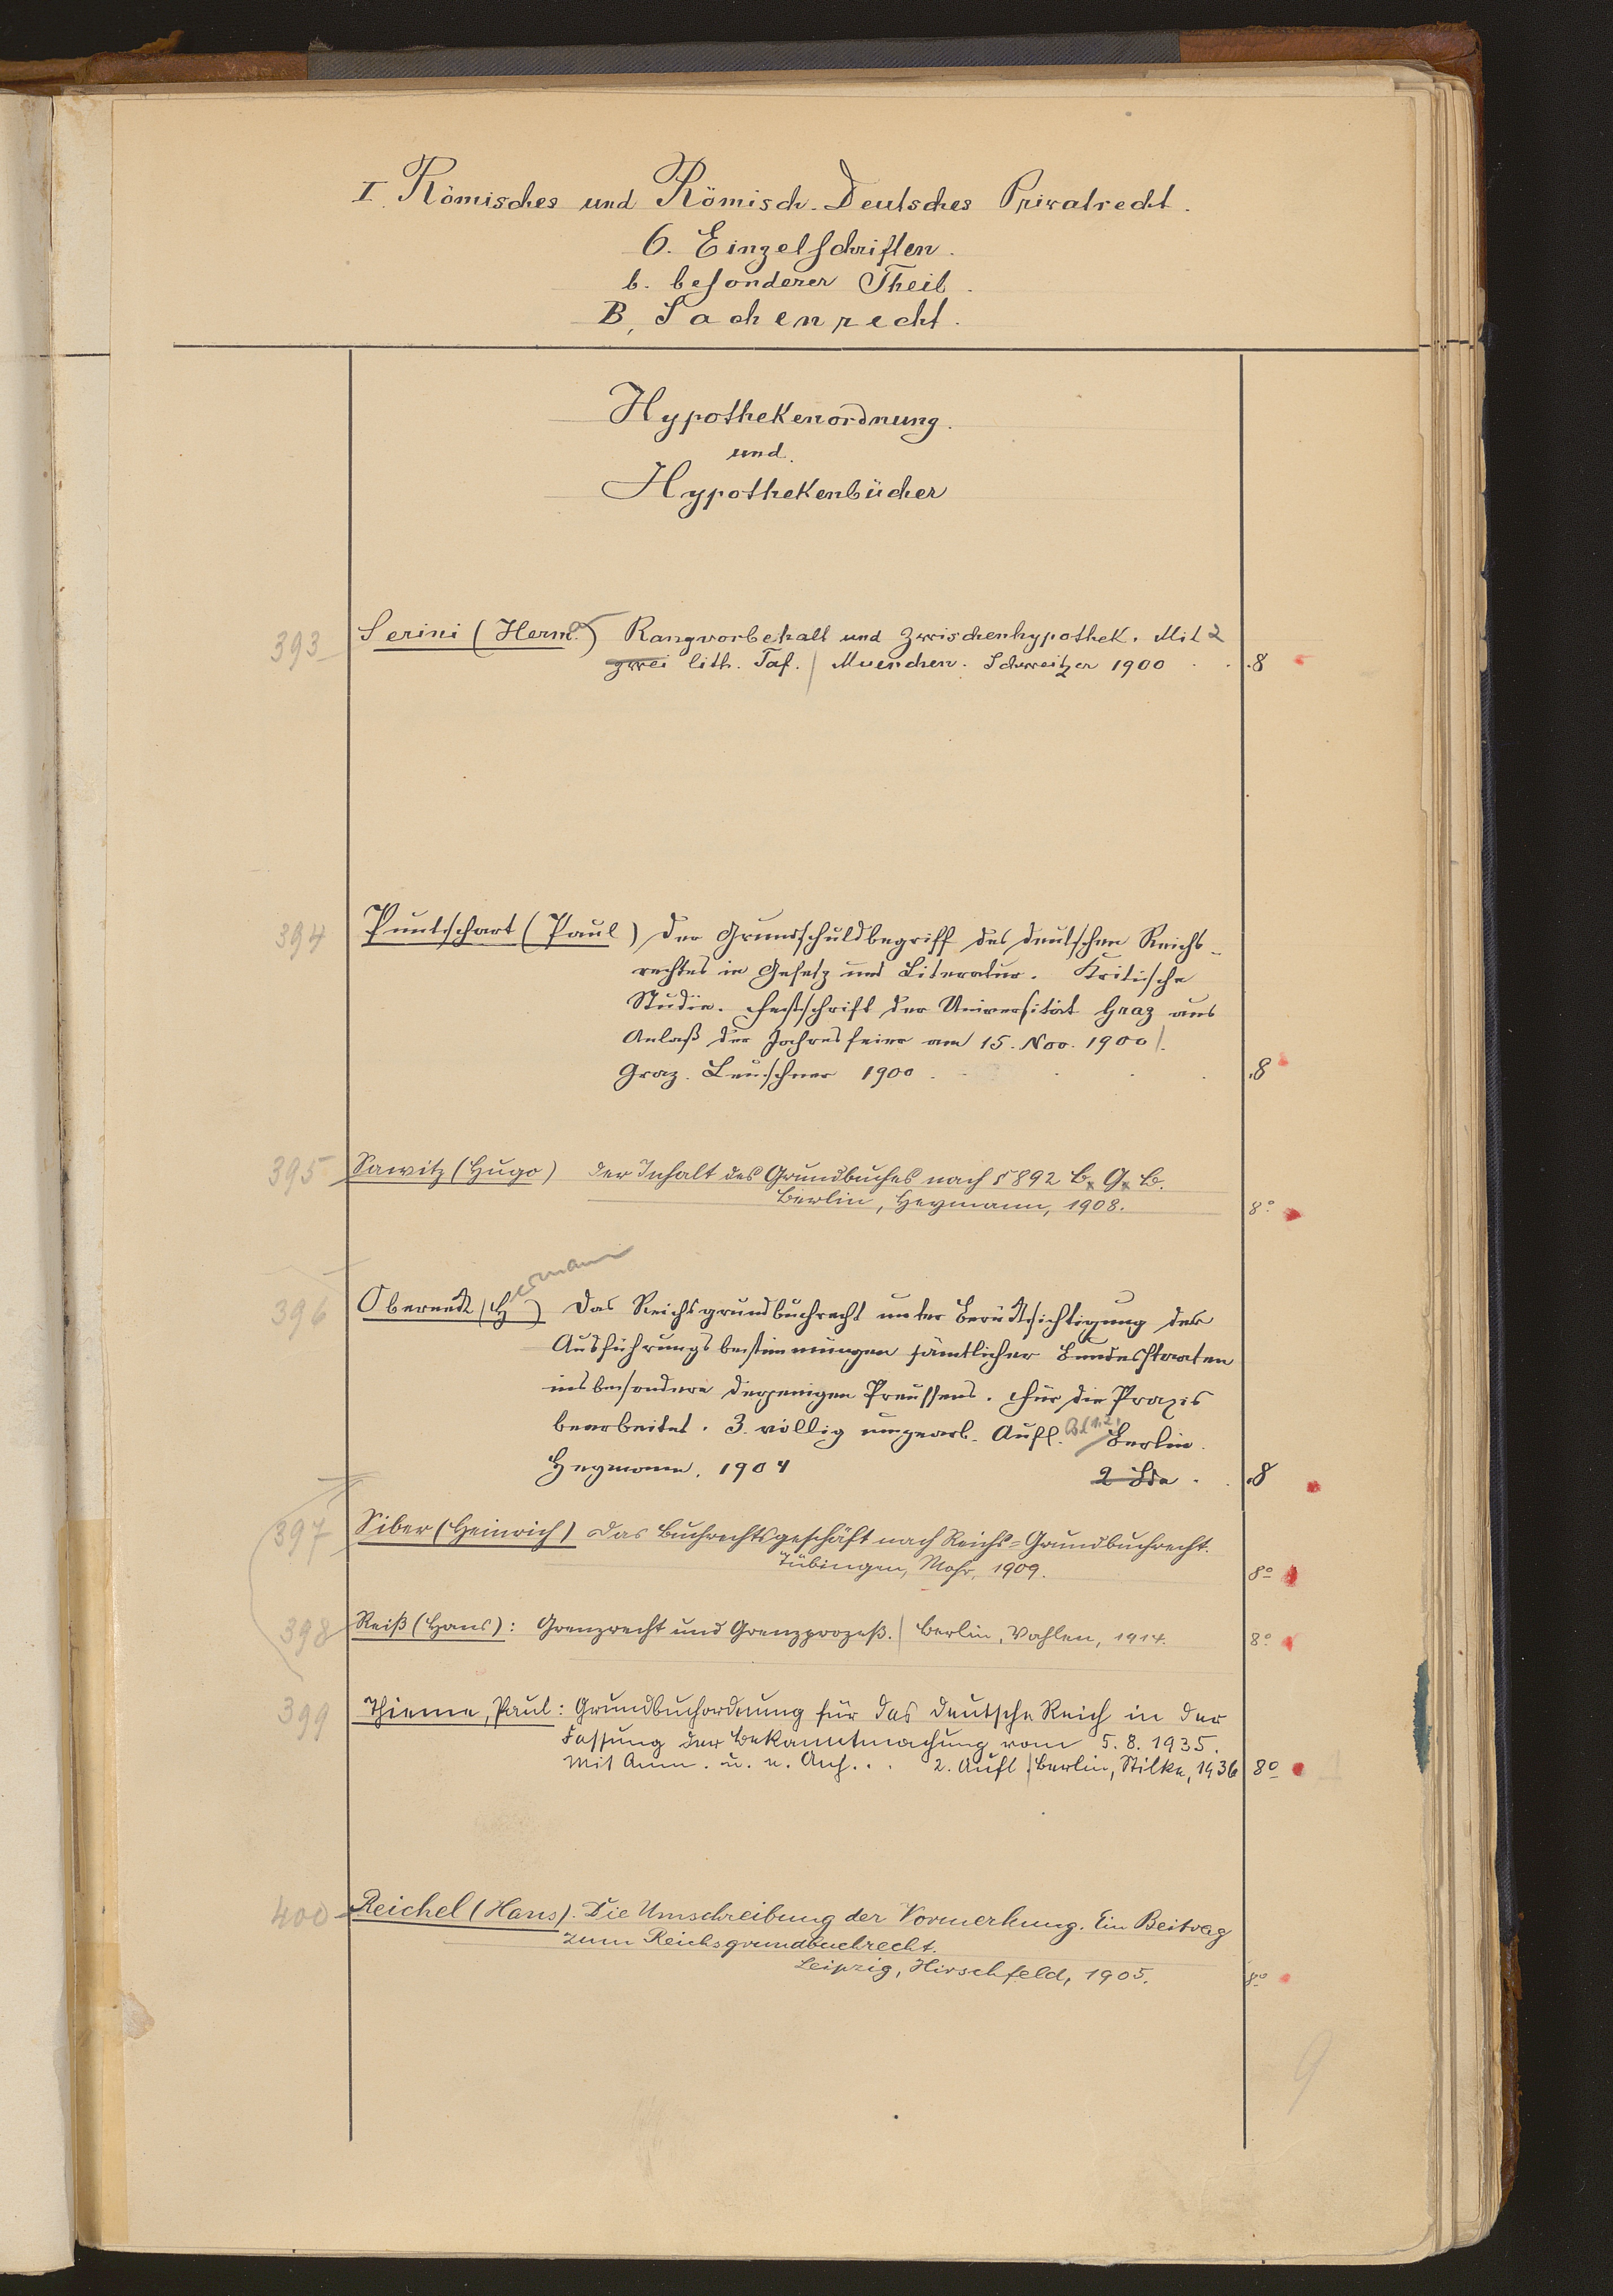 I. Römisches und Römisch-Deutsches Privatrecht.
6. Einzelschriften.
b. besonderer Theil.
B, Sachenrecht.
Hypothekenordnung.
und.
Hypothekenbücher
393 Serini (Herm.) Rangvorbehalt und Zwischenhypothek. Mit 2
zwei lith. Taf. / Muenchen. Schweitzer 1900 . . .8
394 Puntschart (Paul) Der Grundschuldbegriff des deutschen Reichs-
rechtes in Gesetz und Literatur. Kritische
Studie. Festschrift der Universität Graz aus
Anlaß der Jahresfeier am 15. Nov. 1900 /.
Graz. Leuschner 1900 . . . . .8
395 Sawitz (Hugo) Der Inhalt des Grundbuches nach § 892 B. G. B.
Berlin, Heymann, 1908. 8°
396 Oberneck (Hermann) Das Reichsgrundbuchrecht unter Berücksichtigung der
Ausführungsbestimmungen sämtlicher Bundesstaaten
insbesondere derjenigen Preussens. Für die Praxis
bearbeitet. 3. völlig umgearb. Aufl. Bd 1.2. / Berlin.
Heymann. 1904 2 Bde . . .8
397 Siber (Heinrich) Das Buchrechtsgeschäft nach Reichs=Grundbuchrecht.
Tübingen, Mohr, 1909. 8°
398 Reiß (Hans): Grenzrecht und Grenzprozeß. / Berlin, Vahlen, 1914. 8°
399 Thieme, Paul: Grundbuchordnung für das Deutsche Reich in der
Fassung der Bekanntmachung vom 5. 8. 1935.
Mit Anm. u. e. Anh... 2. Aufl. / Berlin, Stilke, 1936 8°
400 Reichel (Hans). Die Umschreibung der Vormerkung. Ein Beitrag
zum Reichsgrundbuchrecht.
Leipzig, Hirschfeld, 1905. 8°
9